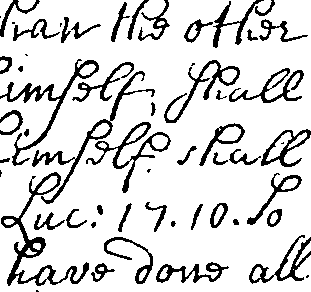 than the other
himself, shall
himself. shall
Luc: 17. 10. So
have done all